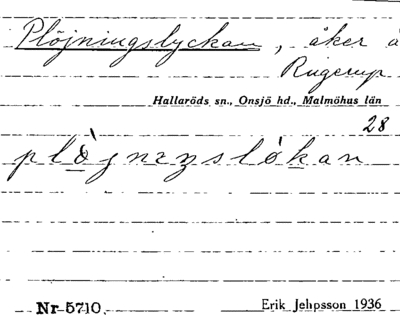 Plöjningslyckan, åker å
Rugerup
Hallaröds sn., Onsjö hd., Malmöhus län
28
plòjnɪŋslókan
Nr 5710.
Erik Jehpsson 1936